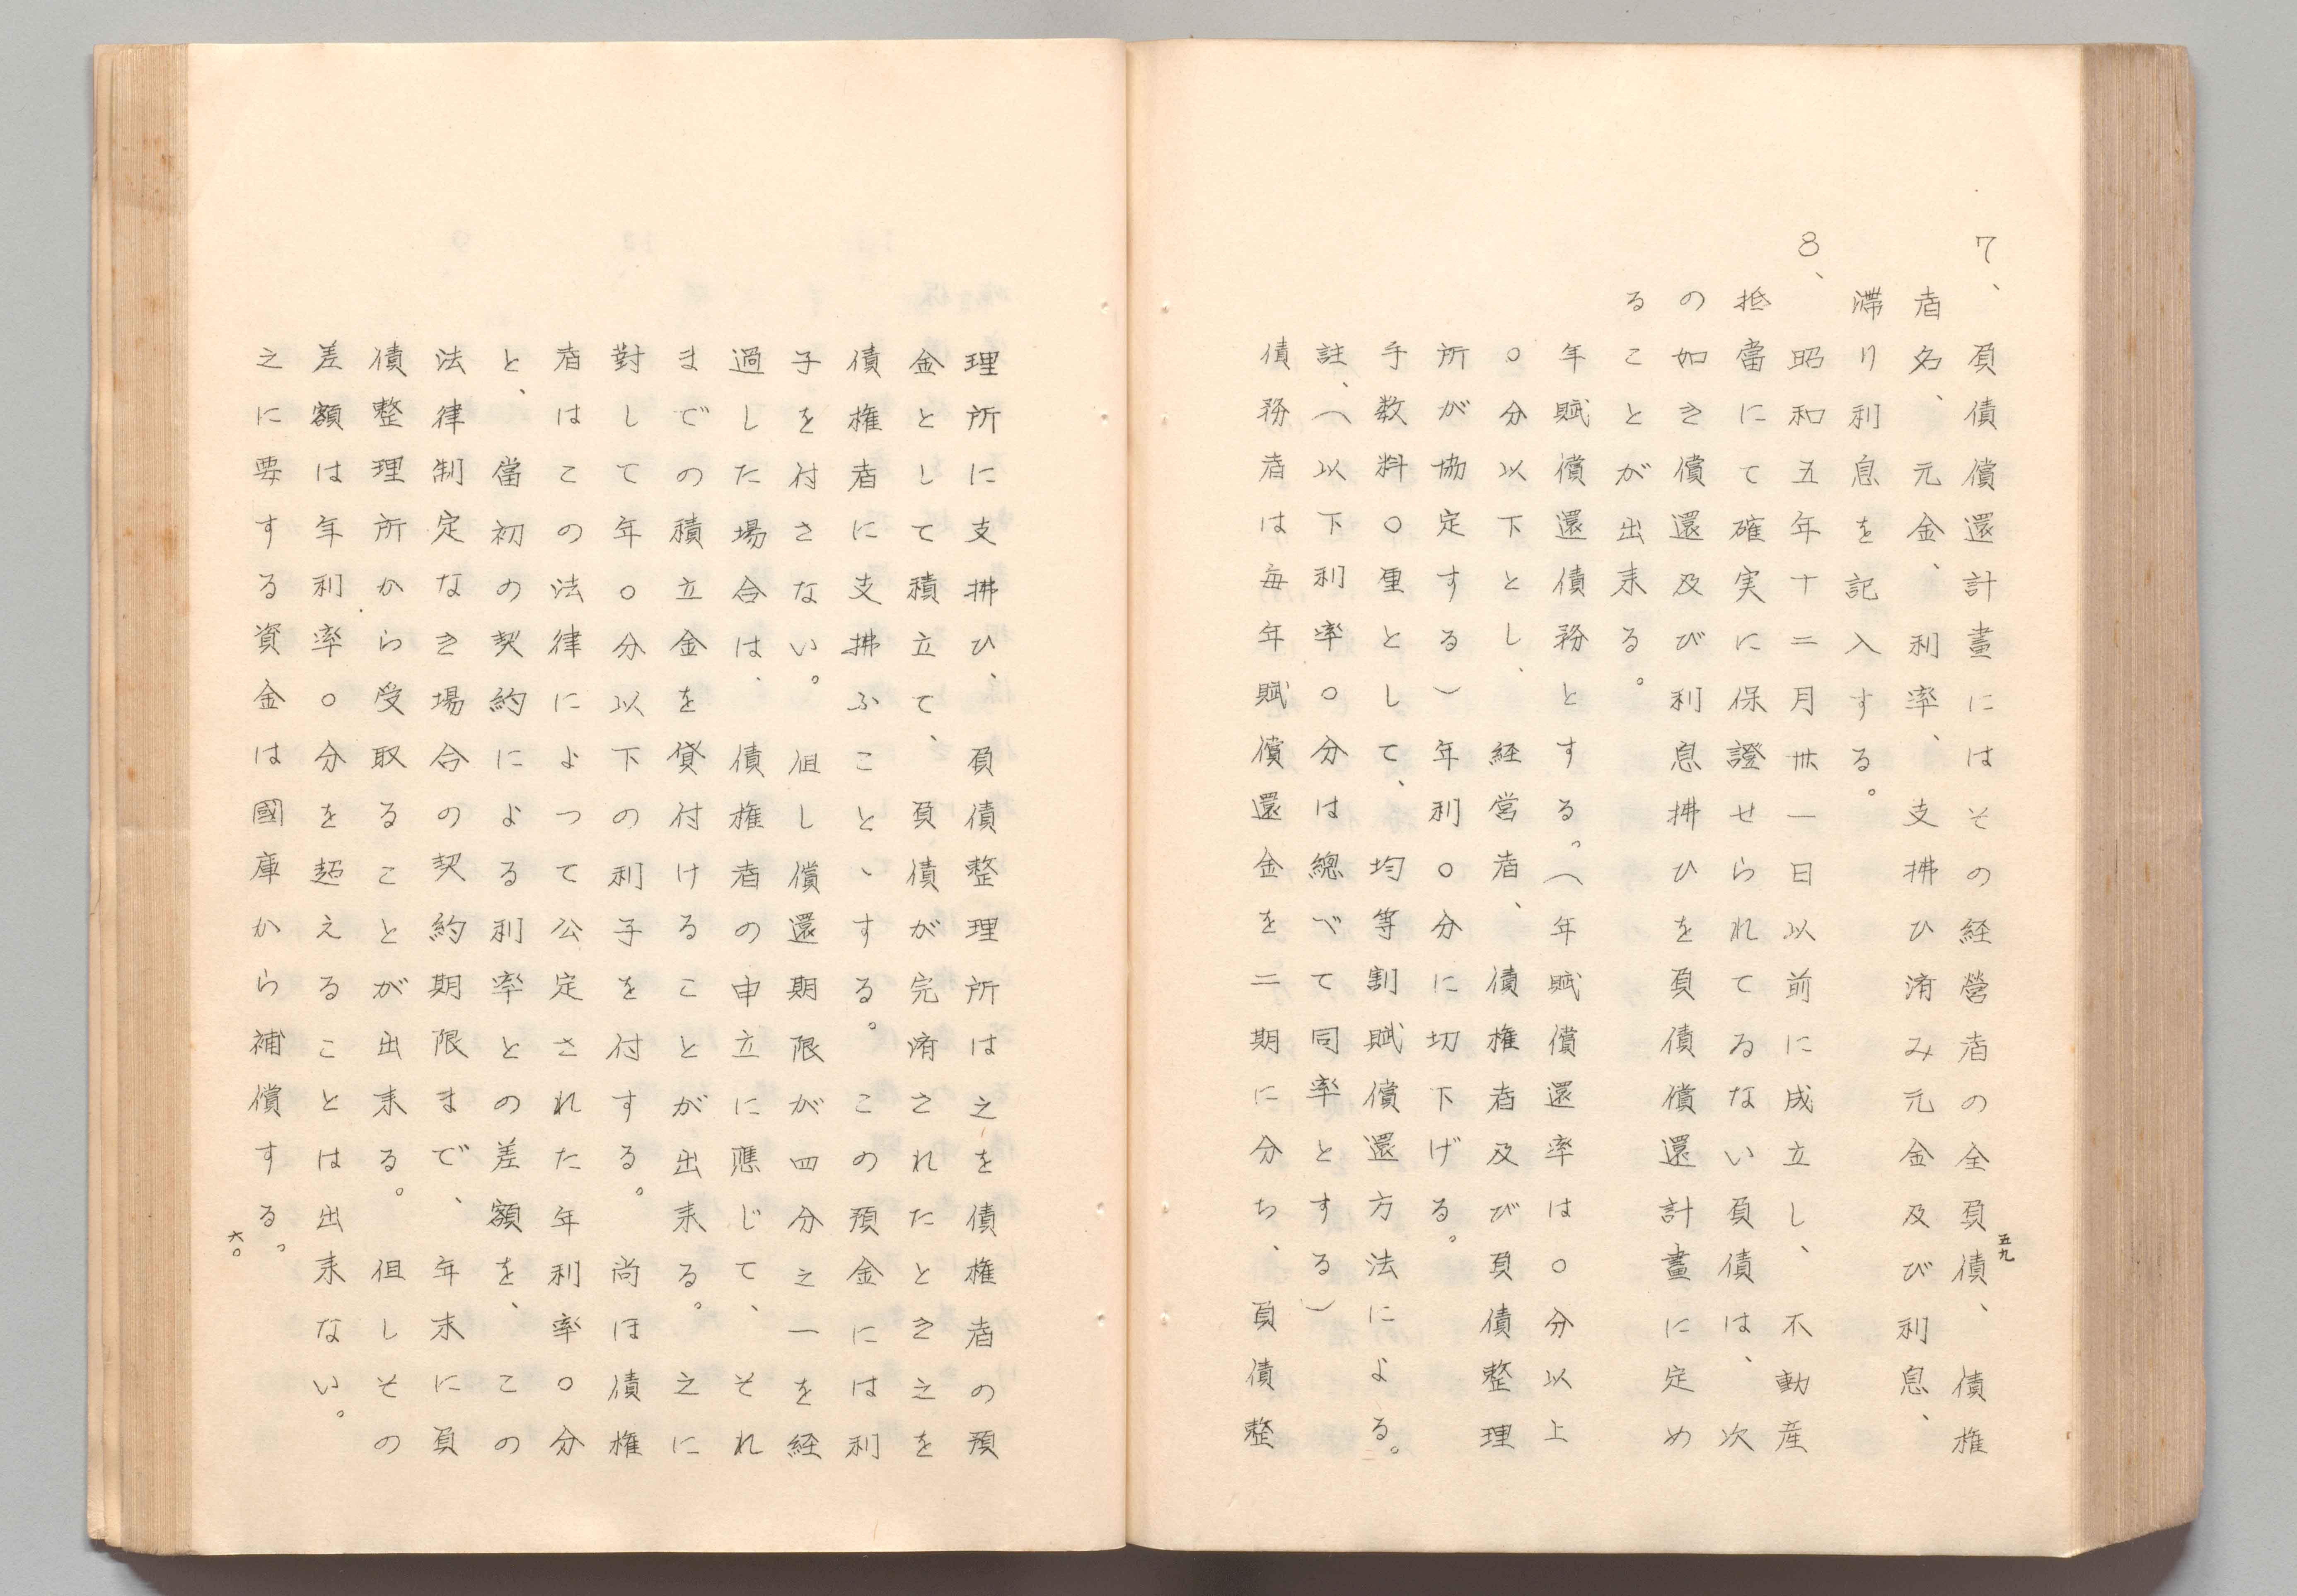 7、負債償還計畫にはその経営者の全負債、債権
者名、元金、利率、支拂ひ済み元金及び利息、
滞り利息を記入する。
8、昭和五年十二月卅一日以前に成立し、不動産
抵當にて確実に保證せられてるない負債は、次
の如き償還及び利息拂ひを負債償還計畫に定め
ることが出来る。
年賦償還債務とする。(年賦償還率は〇分以上
〇分以下とし、経営者、債権者及び負債整理
所が協定する)年利〇分に切下げる。
手数料〇厘として、均等割賦償還方法による。
註、(以下利率〇分は總べて同率とする)
債務者は毎年賦償還金を二期に分ち、負債整
五九
理所に支拂ひ、負債整理所は之を債権者の預
金として積立て、負債が完済されたとき之を
債権者に支拂ふことゝする。この預金には利
子を付さない。但し償還期限が四分之一を経
過した場合は、債権者の申立に應じて、それ
までの積立金を貸付けることが出来る。之に
對して年〇分以下の利子を付する。尚ほ債権
者はこの法律によつて公定された年利率〇分
と、當初の契約による利率との差額を、この
法律制定なき場合の契約期限まで、年末に負
債整理所から受取ることが出来る。但しその
差額は年利率〇分を超えることは出来ない。
之に要する資金は國庫から補償する。
六〇